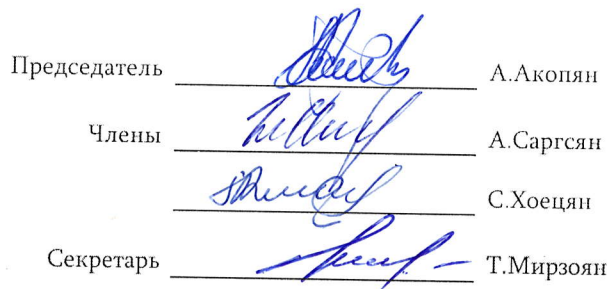 Председатель А.Акопян
Члены А.Саргсян
С.Хоецян
Секретарь Т.Мирзоян